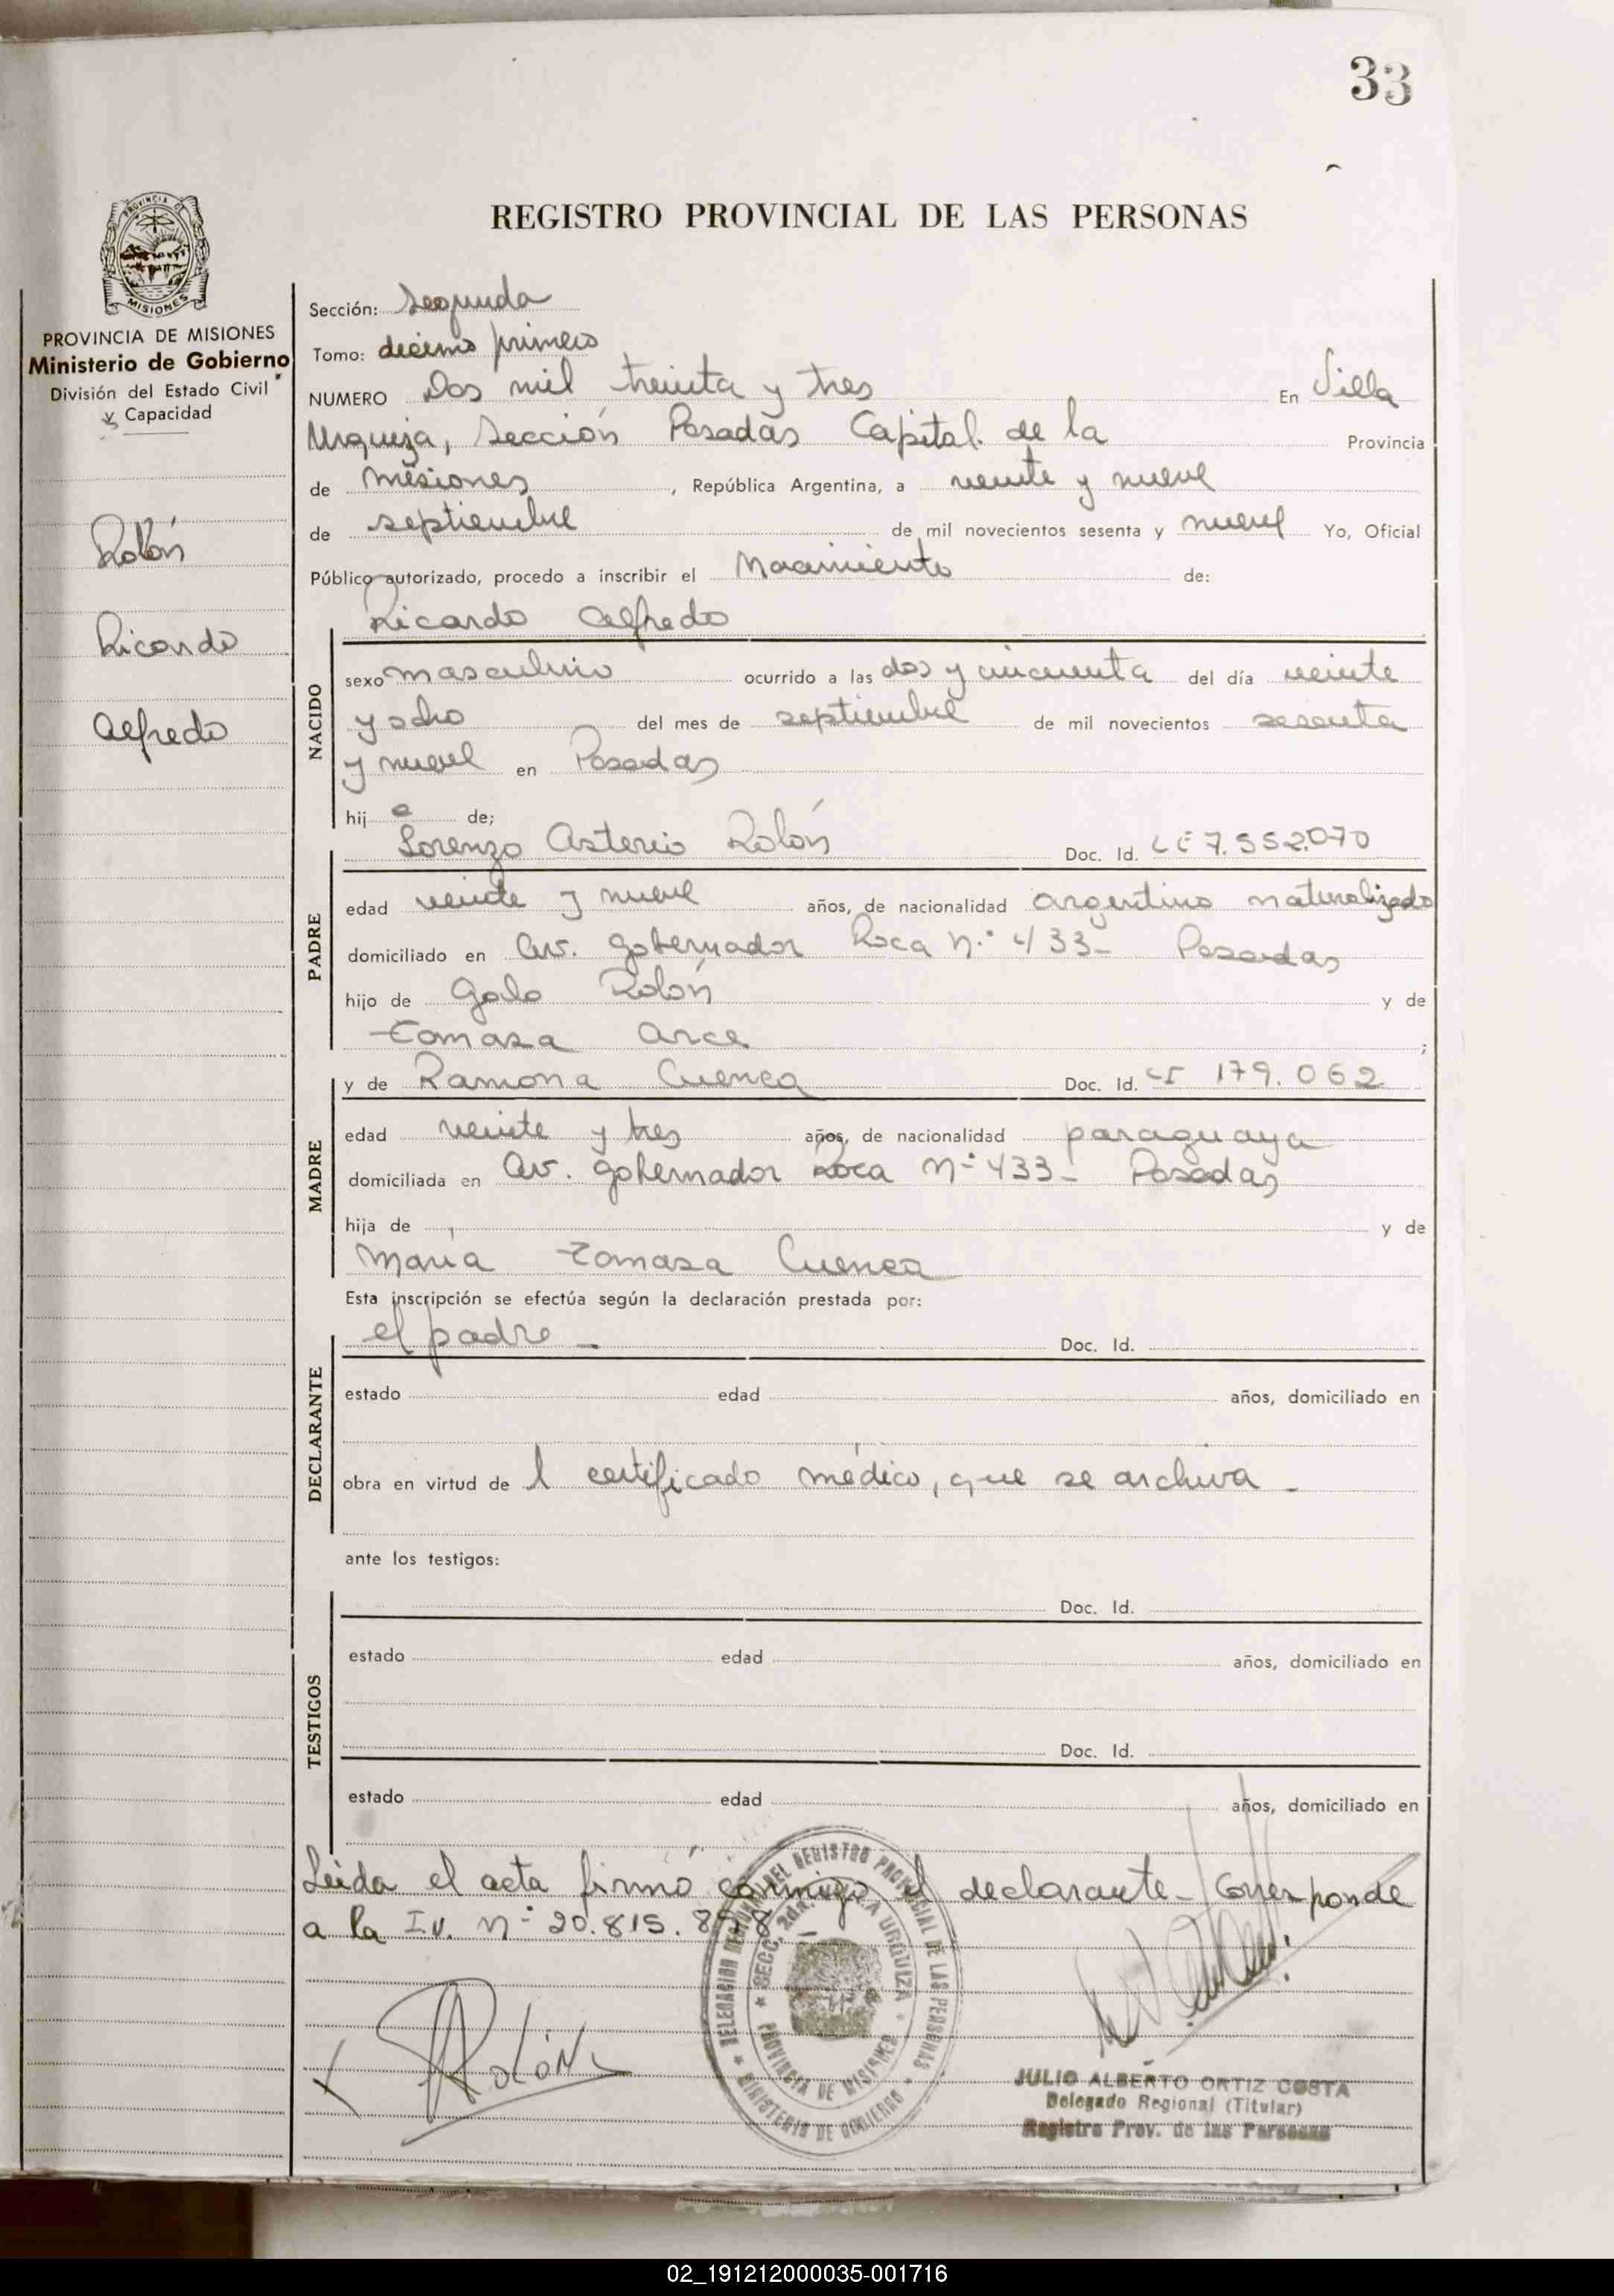 33
REGISTRO PROVINCIAL DE LAS PERSONAS
PROVINCIA DE MISIONES
PROVINCIA DE MISIONES
Ministerio de Gobierno
División del Estado Civil
y Capacidad
Rolón
Ricardo
Alfredo
Sección: Segunda
Tomo: décimo primero
NUMERO Dos mil treinta y tres En Villa
Urquiza, Sección Posadas Capital de la Provincia
de Misiones, República Argentina, a veinte y nueve
de septiembre de mil novecientos sesenta y nueve Yo, Oficial
Público autorizado, procedo a inscribir el Nacimiento de:
Ricardo Alfredo
NACIDO
sexo masculino ocurrido a las dos y cincuenta del día veinte
y ocho del mes de septiembre de mil novecientos sesenta
y nueve en Posadas
hij o de;
Lorenzo Asterio Rolón Doc. Id. LE 7.552.070
PADRE
edad veinte y nueve años, de nacionalidad argentino naturalizado
domiciliado en Av. Gobernador Roca N.° 433- Posadas
hijo de Galo Rolón y de
Tomasa Arce ;
y de Ramona Cuenca Doc. Id. 179.062
MADRE
edad veinte y tres años, de nacionalidad paraguaya
domiciliada en Av. Gobernador Roca N° 433- Posadas
hija de y de
María Tomasa Cuenca
Esta inscripción se efectúa según la declaración prestada por:
el padre - Doc. Id.
DECLARANTE
estado edad años, domiciliado en
obra en virtud de l certificado médico, que se archiva -
ante los testigos:
Doc. Id.
TESTIGOS
estado edad años, domiciliado en
Doc. Id.
estado edad años, domiciliado en
Leída el acta firmó conmigo el declarante - Corresponde
a la I.V. N° 20.815.
DELEGACION REGIONAL DEL REGISTRO PROVINCIAL DE LAS PERSONAS
MINISTERIO DE GOBIERNO
SECC. 2da. VILLA URQUIZA
PROVINCIA DE MISIONES
Rolón
JULIO ALBERTO ORTIZ COSTA
Delegado Regional (Titular)
Registro Prov. de las Personas
02_191212000035-001716